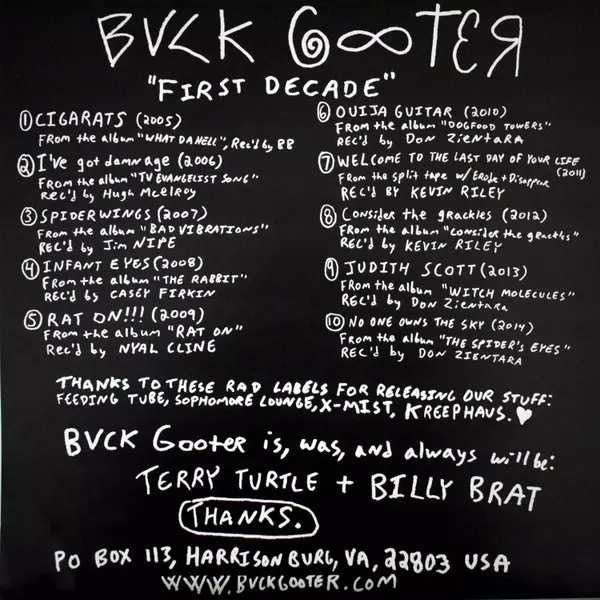 BVCK GOOTER
"FIRST DECADE"
① CIGARATS (2005)
FROM the album "WHAT DA HELL", Rec'd by BB
② I've got damnage (2006)
FROM the album "TV EVANGELIST SONG"
REC'D by Hugh McElroy
③ SPIDERWINGS (2007)
FROM the album "BAD VIBRATIONS"
REC'D by Jim NIPE
④ INFANT EYES (2008)
FROM the album "THE RABBIT"
REC'D by CASEY FIRKIN
⑤ RAT ON!!! (2009)
FROM the album "RAT ON"
Rec'd by NYAL CLINE
⑥ OUIJA GUITAR (2010)
FROM the album "DOGFOOD TOWERS"
REC'D by DON ZIENTARA
⑦ WELCOME TO THE LAST DAY OF YOUR LIFE (2011)
FROM the split tape w/ Erode + Disappear
REC'D BY KEVIN RILEY
⑧ Consider the grackles (2012)
FROM the album "Consider the grackles"
REC'D by KEVIN RILEY
⑨ JUDITH SCOTT (2013)
FROM the album "WITCH MOLECULES"
REC'D by DON ZIENTARA
⑩ NO ONE OWNS THE SKY (2014)
FROM the album "THE SPIDER'S EYES"
REC'D by DON ZIENTARA
THANKS TO THESE RAD LABELS FOR RELEASING OUR STUFF:
FEEDING TUBE, SOPHOMORE LOUNGE, X-MIST, KREEPHAUS. ♥
BVCK GOOTER is, was, and always will be:
TERRY TURTLE + BILLY BRAT
THANKS.
PO BOX 113, HARRISONBURG, VA, 22803 USA
WWW.BVCKGOOTER.COM